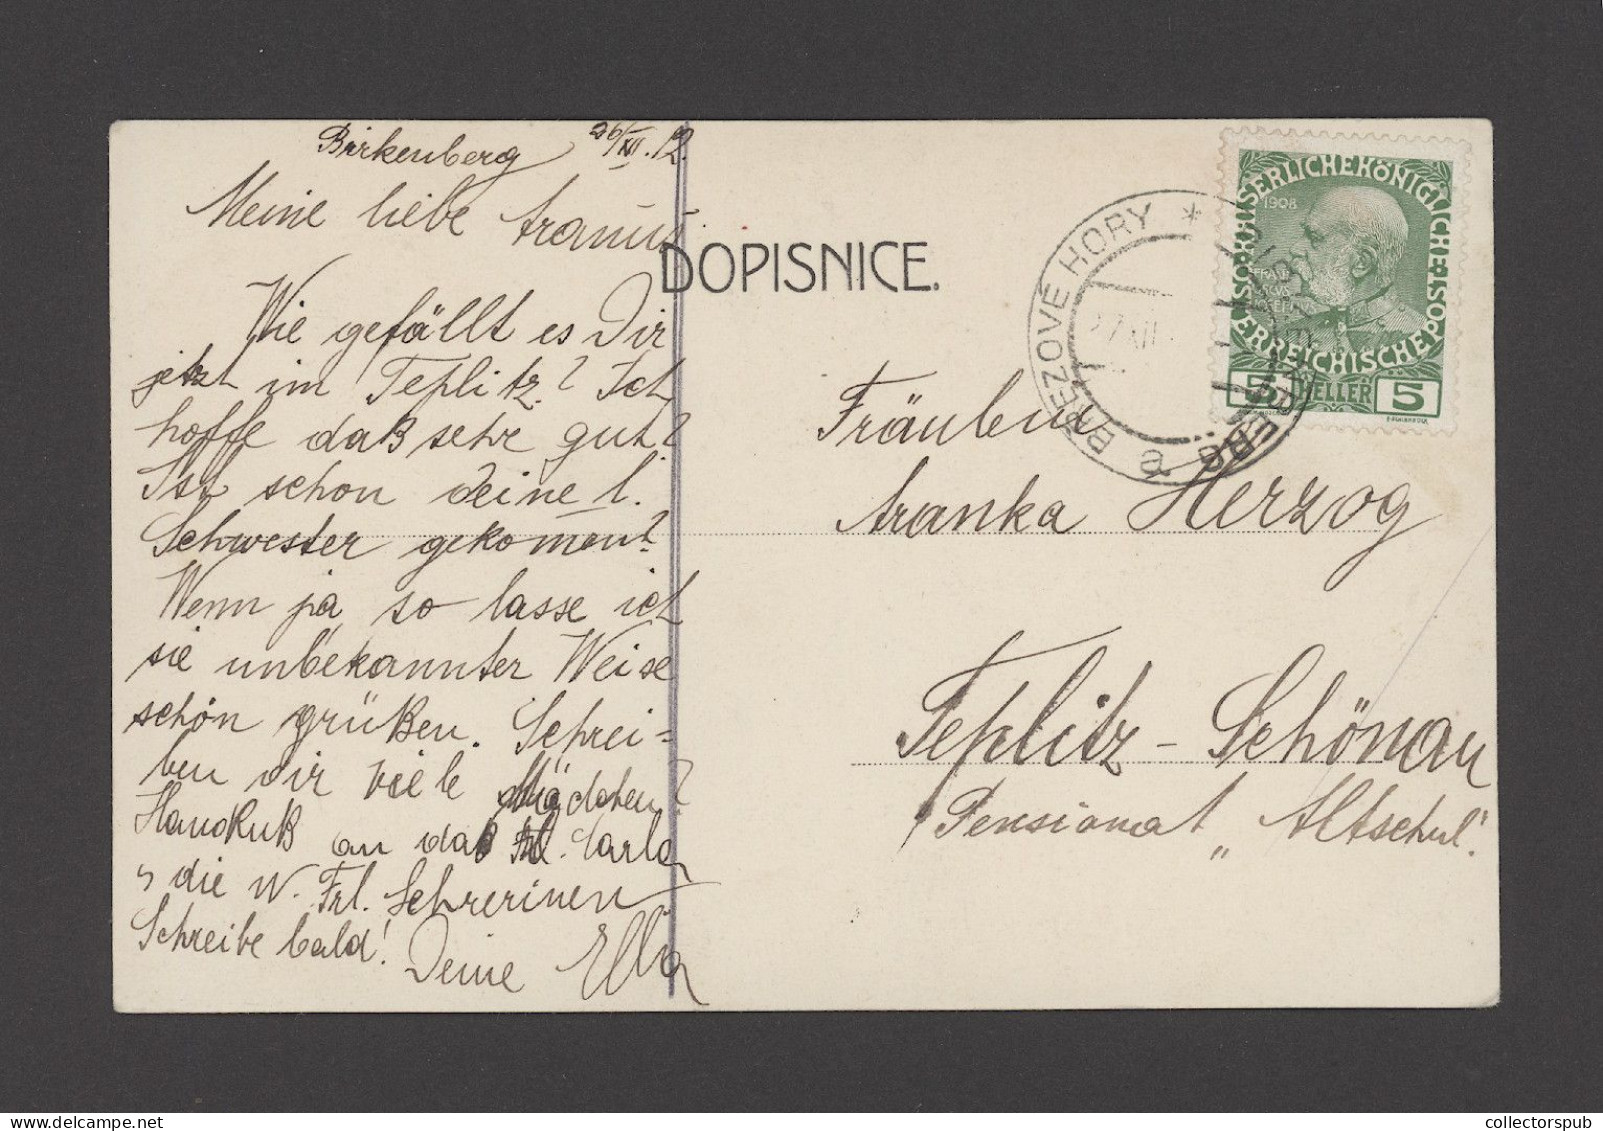 Birkenberg 26/XII.12.
Meine liebe Arannis
Wie gefällt es Dir
jetzt im Teplitz? Ich
hoffe daß sehr gut?
Ist schon deine l.
Schwester gekomen?
Wenn ja so lasse ich
sie unbekannter Weise
schön grüßen. Schrei=
ben dir viele Mädchen?
Handkuß an das Frl. Carla
die w. Frl. Schrerinen
Schreibe bald! Deine Ella
DOPISNICE.
BŘEZOVÉ HORY *
27 XII
KAISERLICHEKÖNIGLICHE
ÖSTERREICHISCHEPOST
1908
FRANCISCVS JOSEPH I
5 HELLER 5
Fräulein
Aranka Herzog
Teplitz-Schönau
Pensionat „Altschul."
collectorspub.com